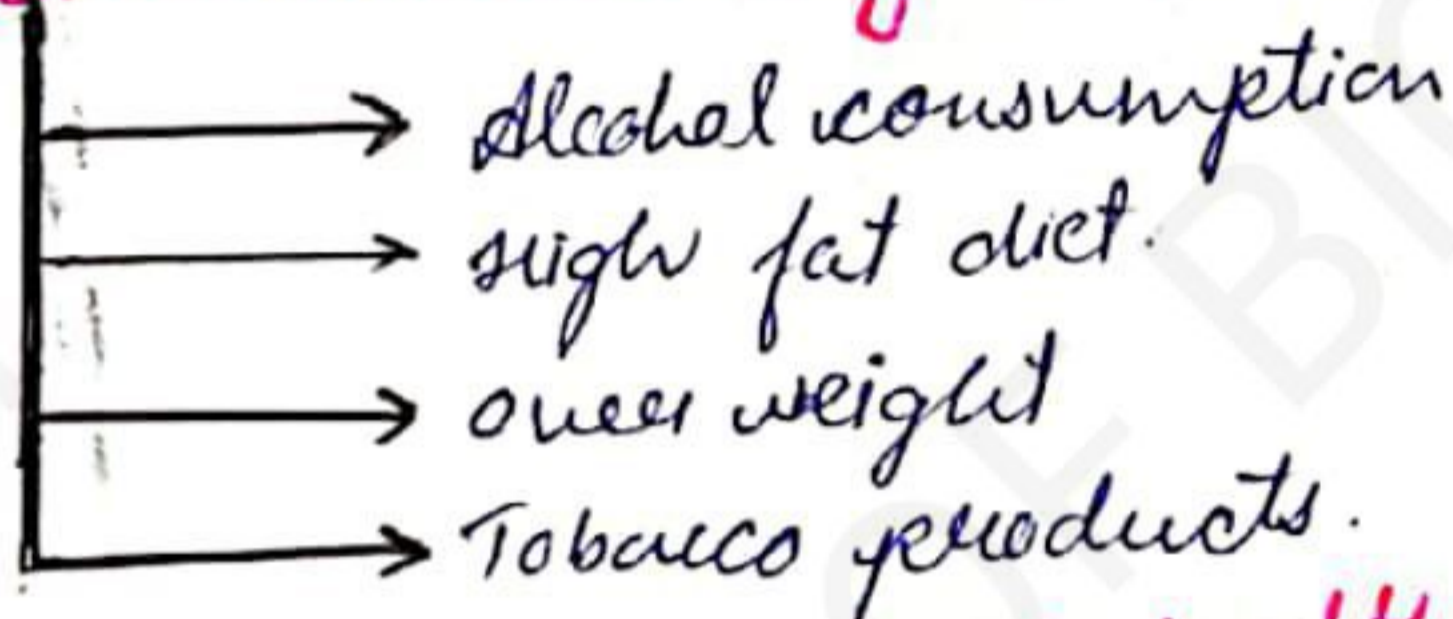 Alcohol consumption
High fat diet.
over weight
Tobacco products.